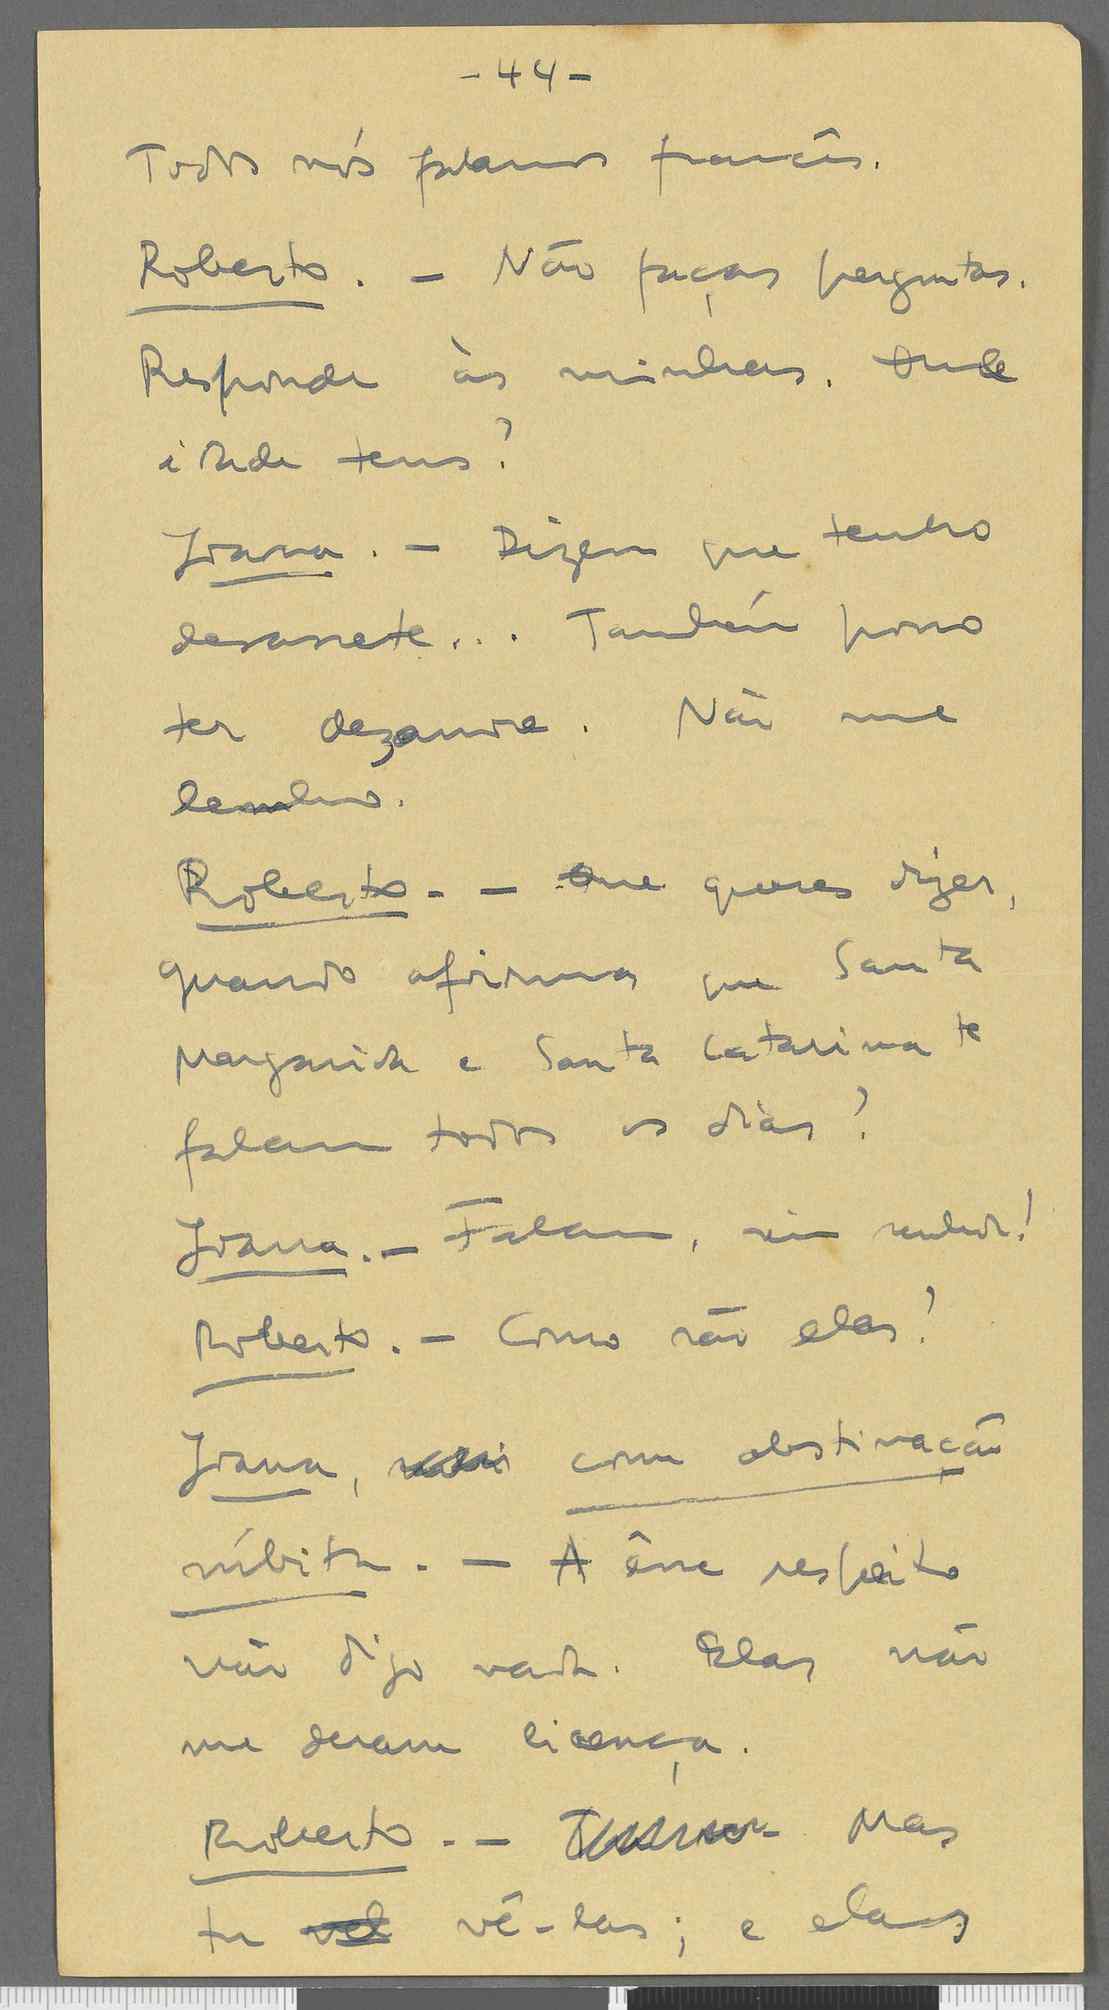 -44-
Todos nós falamos francês.
Roberto. - Não faças perguntas.
Responde às minhas. Que
idade tens?
Joana. - Dizem que tenho
dezassete... Também posso
ter dezanove. Não me
lembro.
Roberto. - Que queres dizer,
quando afirmas que Santa
Margarida e Santa Catarina te
falam todos os dias?
Joana. - Falam, sim senhor!
Roberto. - Como são elas?
Joana, com obstinação
súbita. - A êsse respeito
não digo nada. Elas não
me deram licença.
Roberto. - Mas
tu vê-las; e elas